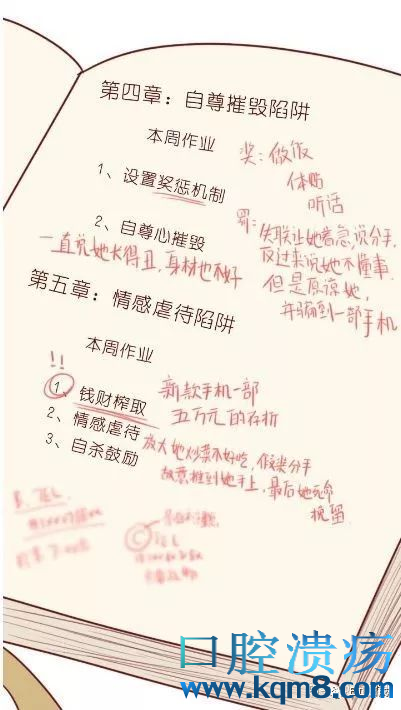 第四章：自尊摧毁陷阱
本周作业
奖：做饭
1、设置奖惩机制
体贴
听话
2、自尊心摧毁
失联让她着急，说分手，
反过来说她不懂事，
但是原谅她，
并骗到一部手机
一直说她长得丑，身材也不好
第五章：情感虐待陷阱
本周作业
!!
1、钱财榨取
新款手机一部
五万元的存折
2、情感虐待
3、自杀鼓励
放大她炒菜不好吃，假装分手
故意推到她手上，最后她死命
挽留
口腔溃疡
www.kqm8.com